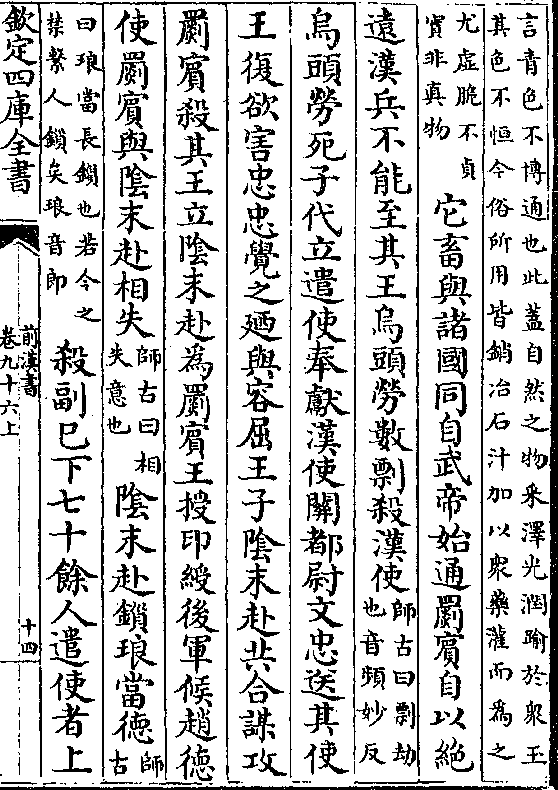 言青色不博通也此蓋自然之物采澤光潤踰於衆玉
其色不恒今俗所用皆銷冶石汁加以衆藥灌而為之
尤虛脆不貞
實非真物
它畜與諸國同自武帝始通罽賓自以絶
遠漢兵不能至其王烏頭勞數剽殺漢使
師古曰剽劫
也音頻妙反
烏頭勞死子代立遣使奉獻漢使關都尉文忠送其使
王復欲害忠忠覺之廼與容屈王子陰末赴共合謀攻
罽賓殺其王立陰末赴為罽賓王授印綬後軍候趙德
使罽賓與陰末赴相失
師古曰相
失意也
陰末赴鎖琅當德
師
古
曰琅當長鎖也若今之
禁繫人鎖矣琅音郎
殺副已下七十餘人遣使者上
欽定四庫全書
前漢書
卷九十六上
十四